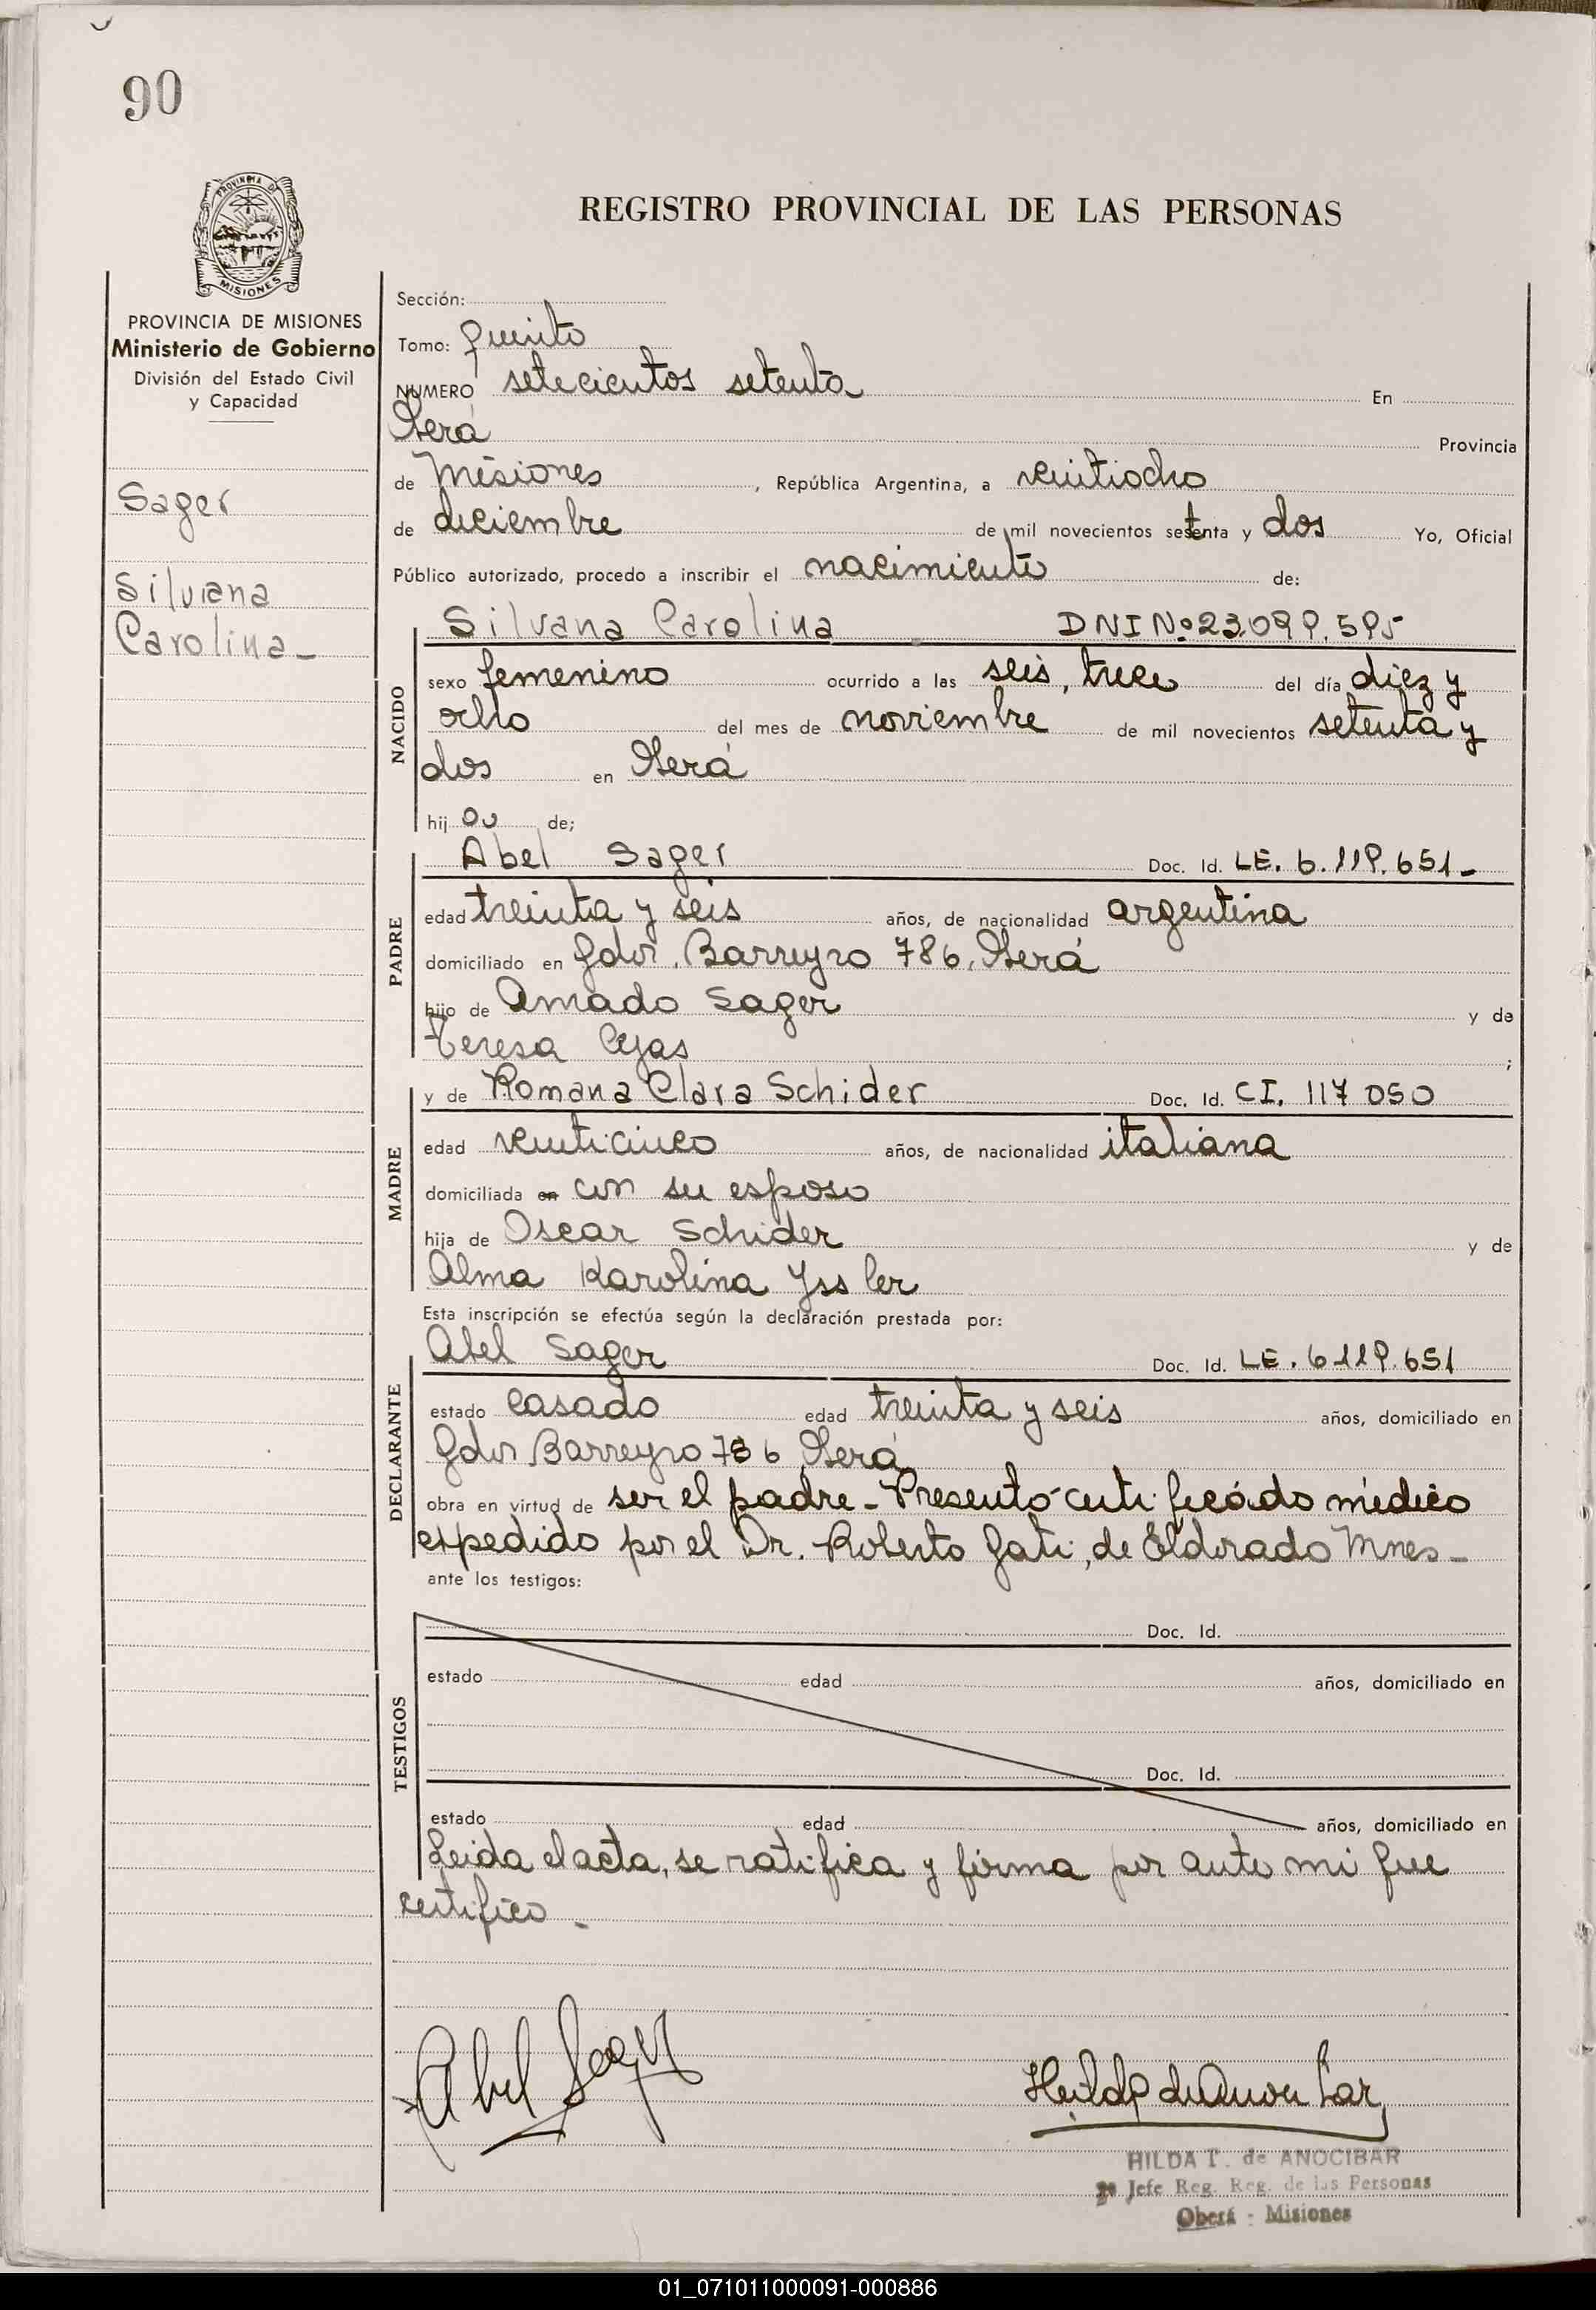 90
PROVINCIA DE
MISIONES
REGISTRO PROVINCIAL DE LAS PERSONAS
PROVINCIA DE MISIONES
Ministerio de Gobierno
División del Estado Civil
y Capacidad
Sager
Silvana
Carolina-
Sección:
Tomo: quinto
NUMERO setecientos setenta En
Oberá Provincia
de Misiones, República Argentina, a veintiocho
de diciembre de mil novecientos setenta y dos Yo, Oficial
Público autorizado, procedo a inscribir el nacimiento de:
NACIDO
Silvana Carolina DNI Nº 23.099.595
sexo femenino ocurrido a las seis, trece del día diez y
ocho del mes de noviembre de mil novecientos setenta y
dos en Oberá
hij de;
PADRE
Abel Sager Doc. Id. LE. 6.119.651-
edad treinta y seis años, de nacionalidad argentina
domiciliado en Gdor. Barreyro 786, Oberá
hijo de Amado Sager y de
Teresa ;
MADRE
y de Romana Clara Schider Doc. Id. CI. 117 050
edad veinticinco años, de nacionalidad italiana
domiciliada en con su esposo
hija de Oscar Schider y de
Alma Karolina Yssler
Esta inscripción se efectúa según la declaración prestada por:
DECLARANTE
Abel Sager Doc. Id. LE. 6119.651
estado casado edad treinta y seis años, domiciliado en
Gdor Barreyro 786 Oberá
obra en virtud de ser el padre - Presentó certificado médico
expedido por el Dr. Roberto Gati, de Eldorado Mnes-
ante los testigos:
TESTIGOS
Doc. Id.
estado edad años, domiciliado en
Doc. Id.
estado edad años, domiciliado en
Leida el acta, se ratifica y firma por ante mi que
certifico.-
Abel Sager
HILDA T. de ANOCIBAR
Jefe Reg. Reg. de las Personas
Oberá - Misiones
01_071011000091-000886